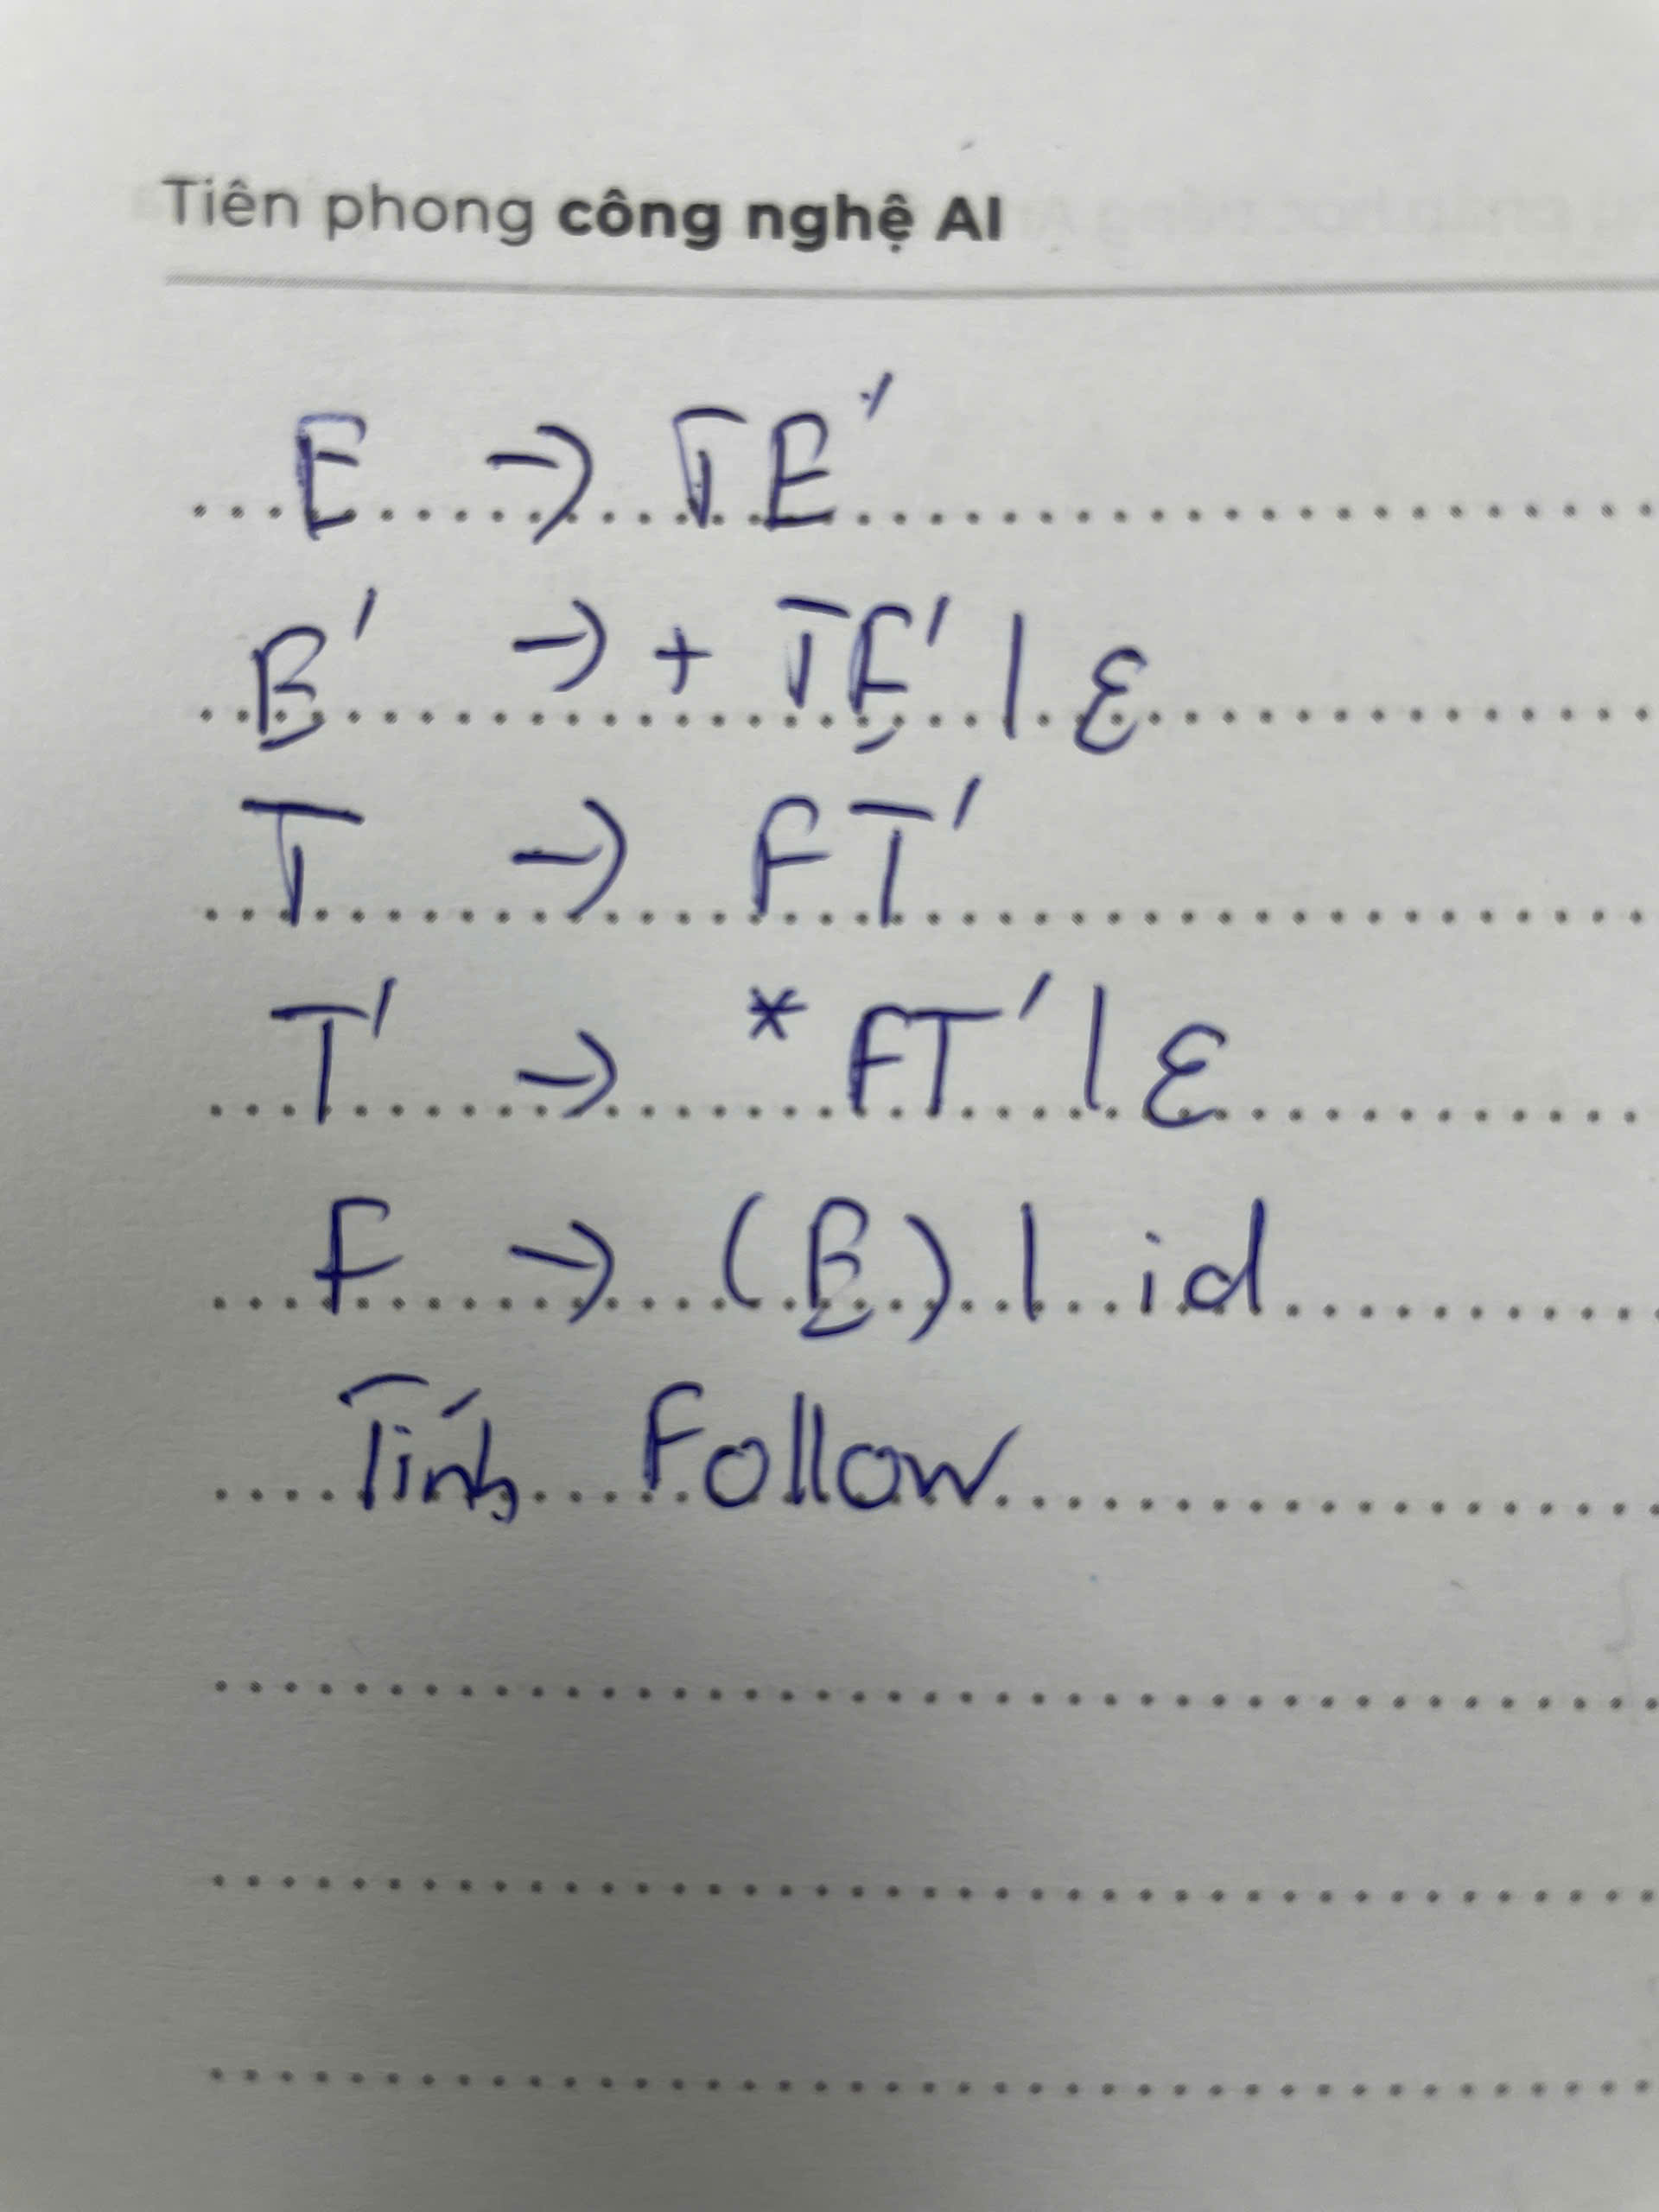 Tiên phong công nghệ AI
E → TE'
E' → + TE' | ε
T → FT'
T' → * FT' | ε
F → (E) | id
Tính Follow